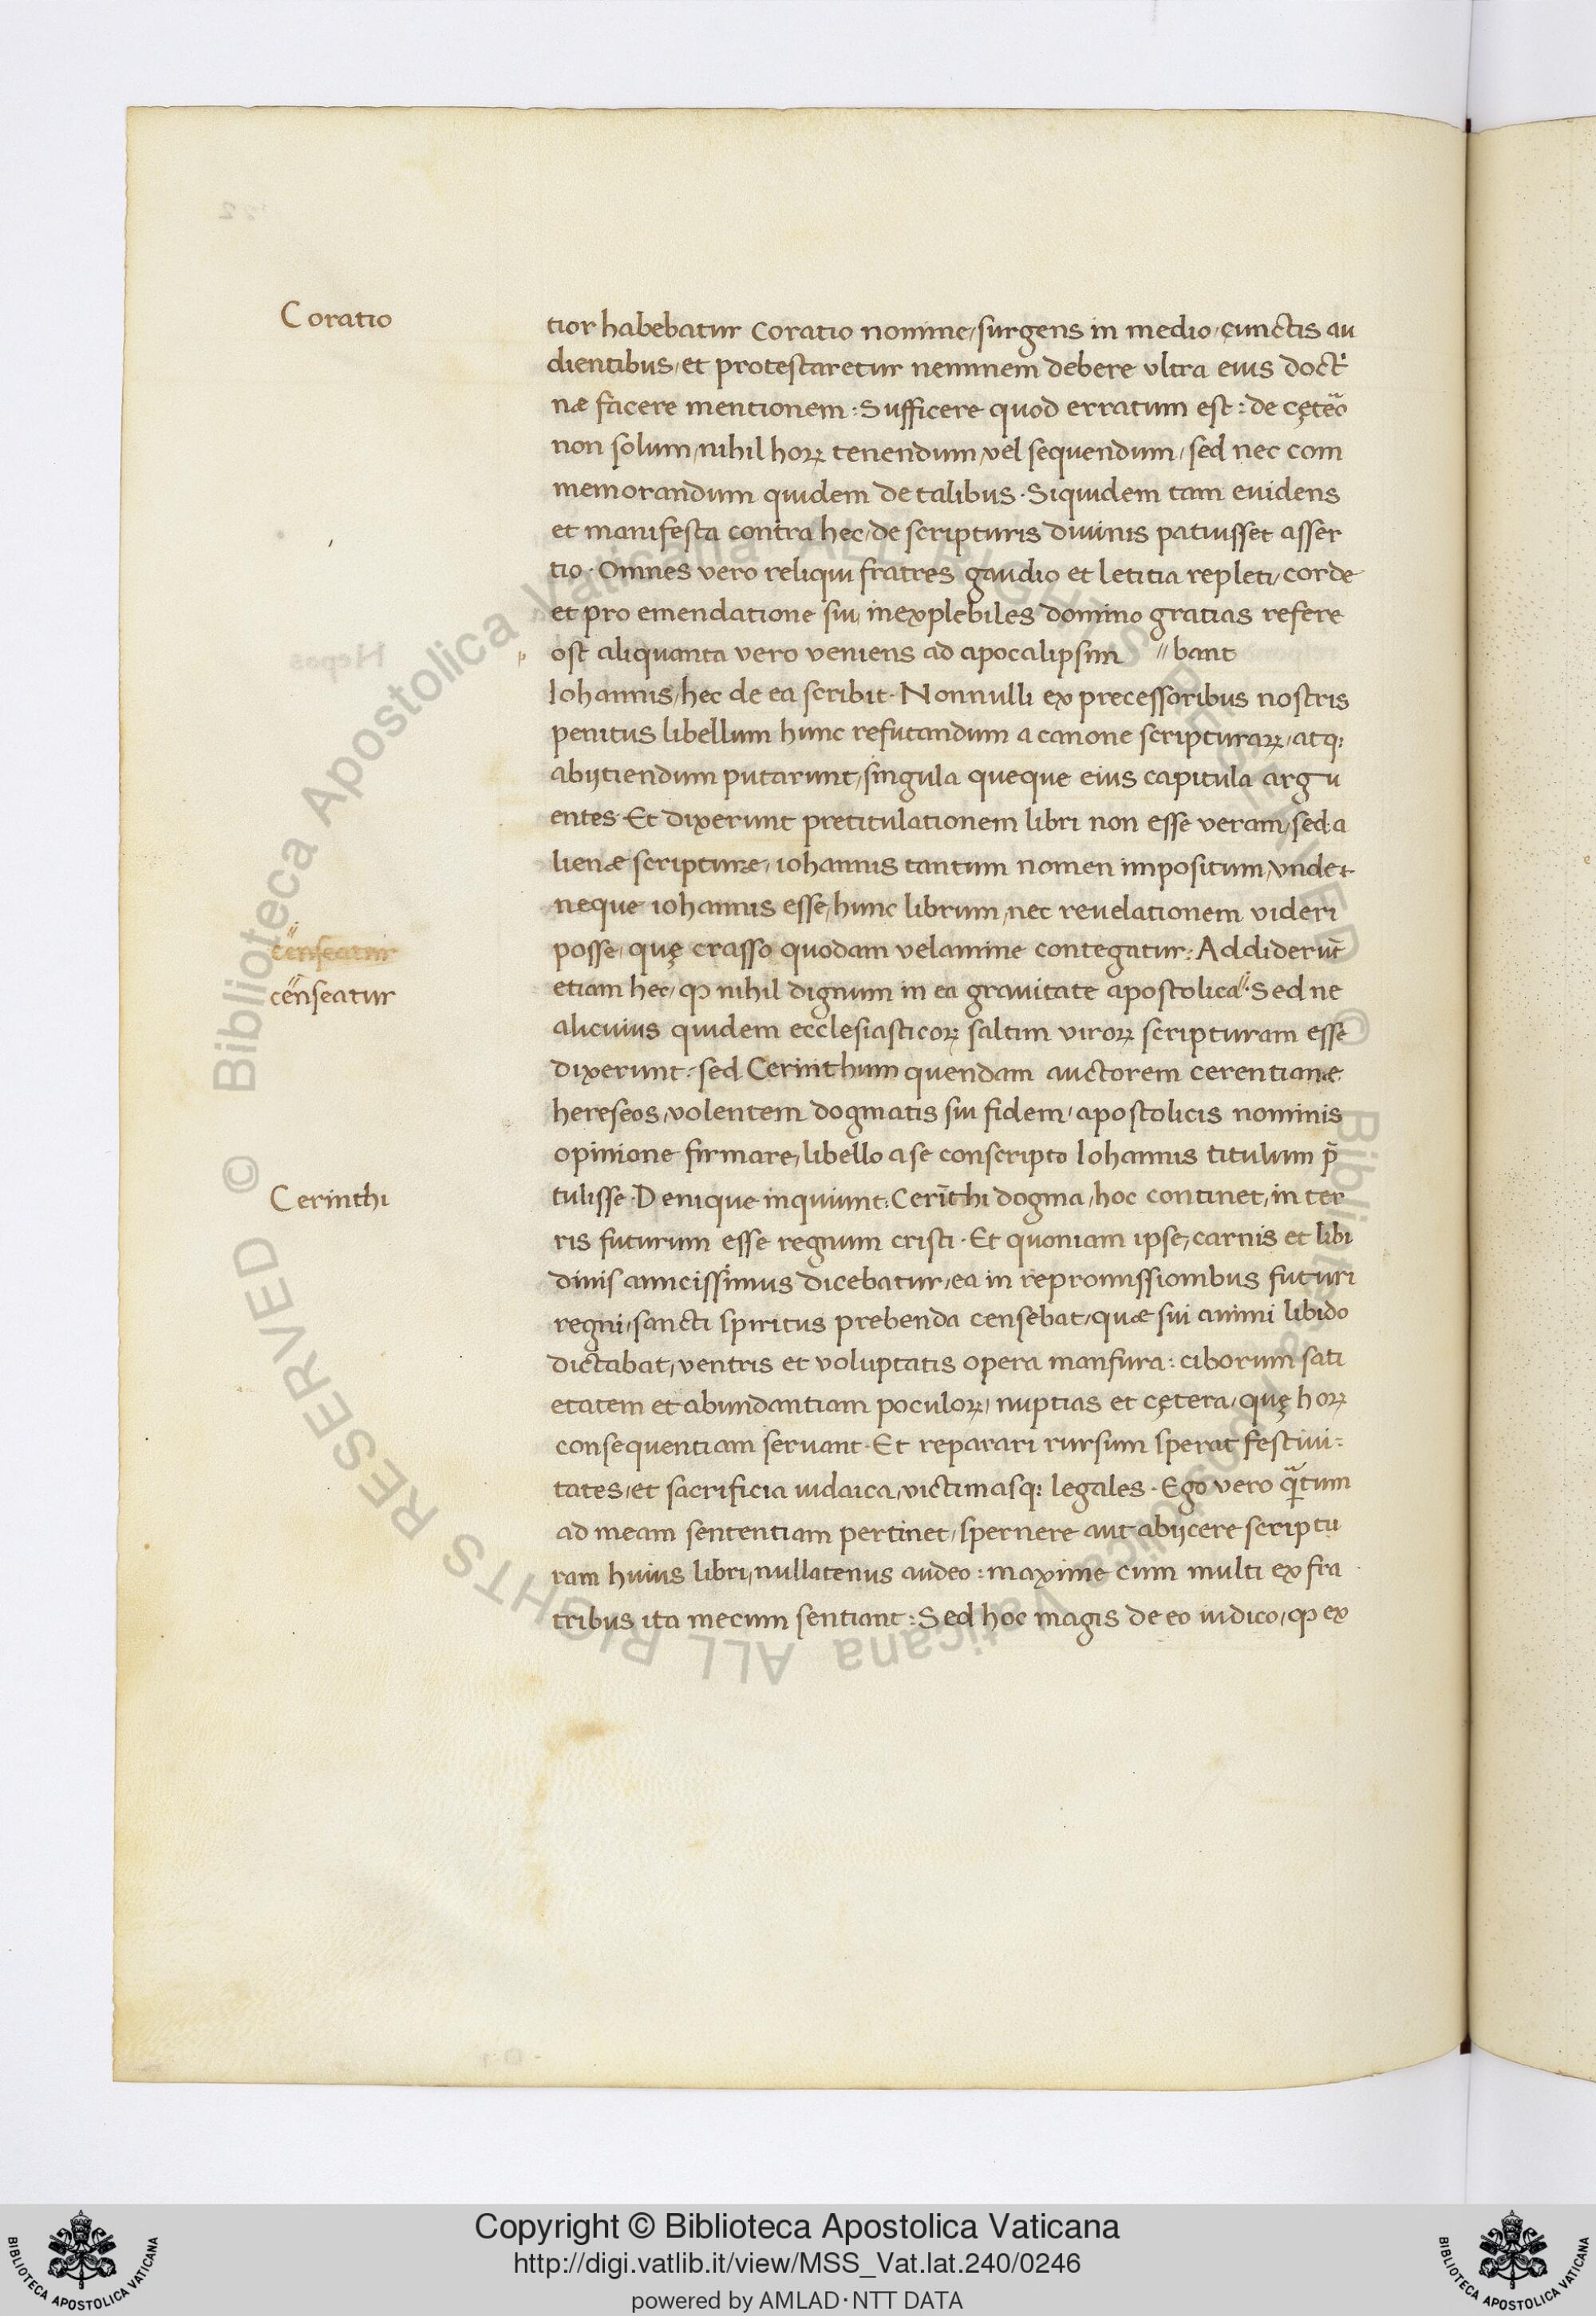 Coratio
tior habebatur Coratio nomine, surgens in medio, cunctis au
dientibus, et protestaretur neminem debere vltra eius doctͥ
næ facere mentionem: Sufficere quod erratum est: de cęteͣo
non solum, nihil horꝝ tenendum, vel sequendum, sed nec com
memorandum quidem de talibus. Siquidem tam euidens
et manifesta contra hec, de scripturis diuinis patuisset asser
tio. Omnes vero reliqui fratres gaudio et letitia repleti, corde
et pro emendatione sui, inexplebiles domino gratias refere
p ost aliquanta vero veniens ad apocalipsim // bant
Iohannis, hec de ea scribit. Nonnulli ex precessoribus nostris
penitus libellum hunc refutandum a canone scripturaꝝ, atq;
abijtiendum putarunt, singula queque eius capitula argu
entes. Et dixerunt pretitulationem libri non esse veram, sed a
lienæ scripturæ, iohannis tantum nomen impositum, vnde
neque iohannis esse, hunc librum, nec reuelationem videri
censeatur
posse, quę crasso quodam velamine contegatur: Addiderūt
cēnseatur
etiam hec, ꝙ nihil dignum in ea grauitate apostolica". Sed ne
alicuius quidem ecclesiasticoꝝ saltim viroꝝ scripturam esse
dixerunt: sed Cerinthum quendam auctorem cerentianæ
hereseos, volentem dogmatis sui fidem, apostolicis nominis
opinione firmare, libello a se conscripto Iohannis titulum p̄
Cerinthi
tulisse. Denique inquiunt: Cerīthi dogma, hoc continet, in ter
ris futurum esse regnum cristi. Et quoniam ipse, carnis et libi
dinis amicissimus dicebatur, ea in repromissionibus futuri
regni, sancti spiritus prebenda censebat, quæ sui animi libido
dictabat, ventris et voluptatis opera mansura: ciborum sati
etatem et abundantiam poculoꝝ, nuptias et cętera, quę hoꝝ
consequentiam seruant. Et reparari rursum sperat festiui:
tates, et sacrificia iudaica, victimasq; legales. Ego vero qͣtum
ad meam sententiam pertinet, spernere aut abijcere scriptu
ram huius libri, nullatenus audeo: maxime cum multi ex fra
tribus ita mecum sentiant: Sed hoc magis de eo iudico, ꝙ ex
© Biblioteca Apostolica Vaticana ALL RIGHTS RESERVED © Biblioteca Apostolica Vaticana ALL RIGHTS RESERVED
Copyright © Biblioteca Apostolica Vaticana
http://digi.vatlib.it/view/MSS_Vat.lat.240/0246
powered by AMLAD·NTT DATA
BIBLIOTECA APOSTOLICA VATICANA
BIBLIOTECA APOSTOLICA VATICANA